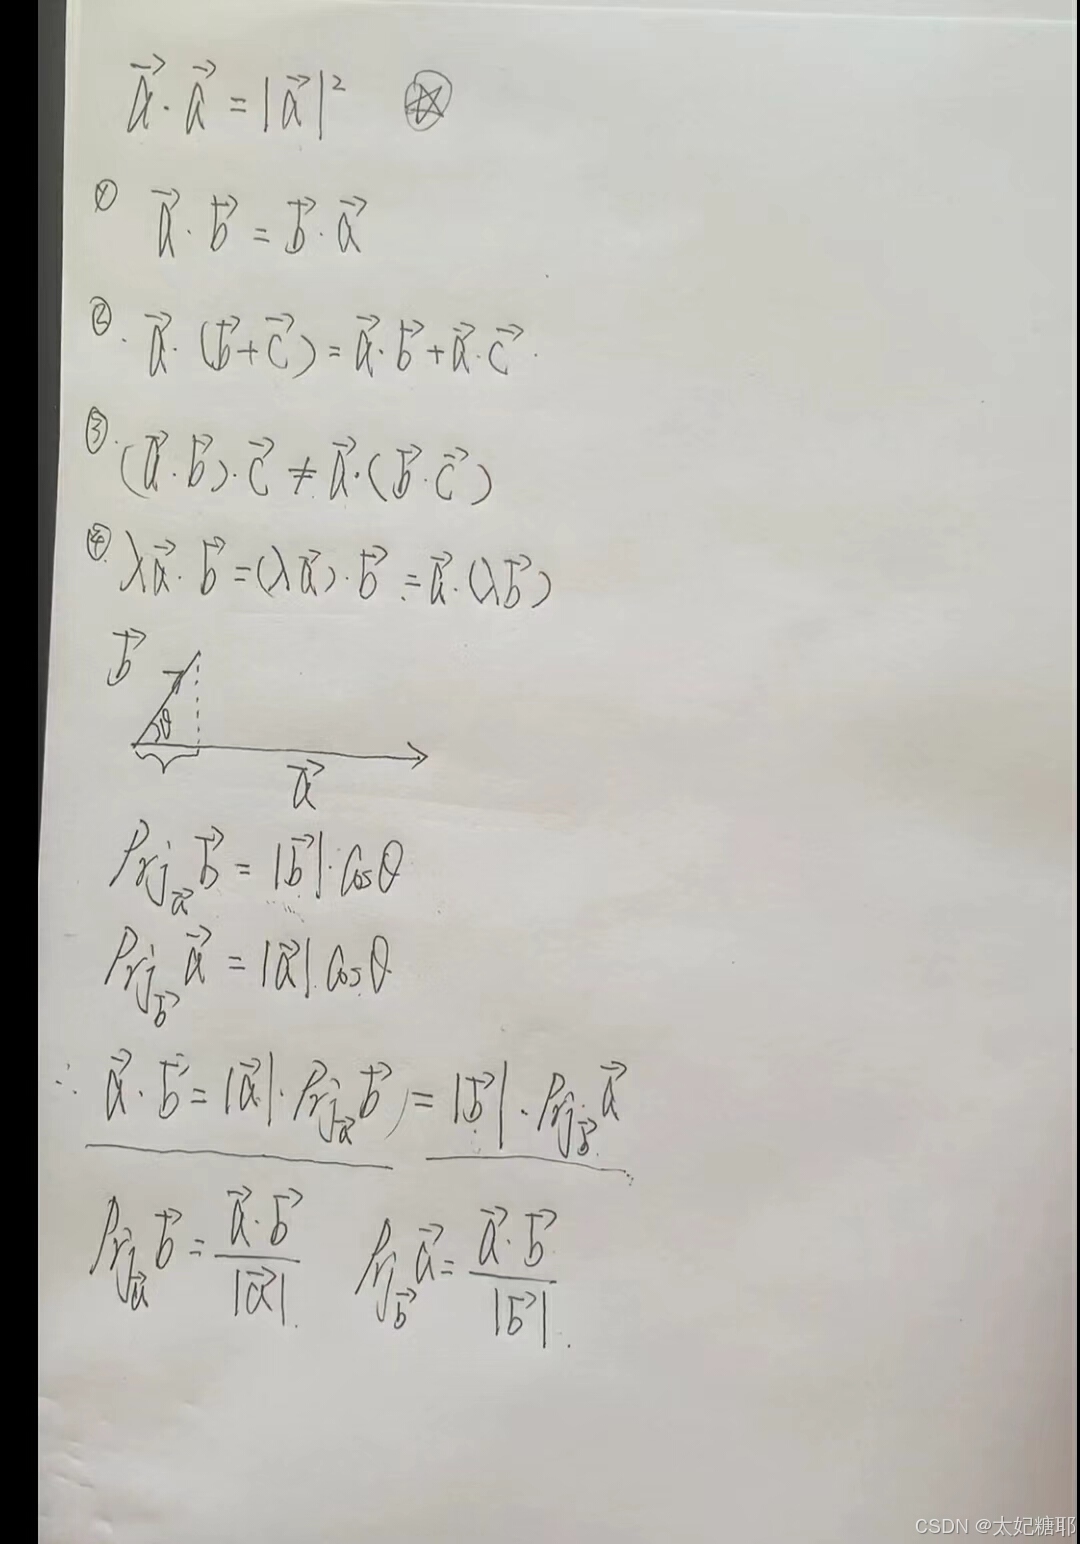 $\vec{a} \cdot \vec{a} = |\vec{a}|^2$
① $\vec{a} \cdot \vec{b} = \vec{b} \cdot \vec{a}$
② $\vec{a} \cdot (\vec{b} + \vec{c}) = \vec{a} \cdot \vec{b} + \vec{a} \cdot \vec{c}$
③ $(\vec{a} \cdot \vec{b}) \cdot \vec{c} \neq \vec{a} \cdot (\vec{b} \cdot \vec{c})$
④ $\lambda \vec{a} \cdot \vec{b} = (\lambda \vec{a}) \cdot \vec{b} = \vec{a} \cdot (\lambda \vec{b})$
$\vec{b}$
$\theta$
$\vec{a}$
$Prj_{\vec{a}} \vec{b} = |\vec{b}| \cdot \cos\theta$
$Prj_{\vec{b}} \vec{a} = |\vec{a}| \cdot \cos\theta$
∴ $\vec{a} \cdot \vec{b} = |\vec{a}| \cdot Prj_{\vec{a}} \vec{b} = |\vec{b}| \cdot Prj_{\vec{b}} \vec{a}$
$Prj_{\vec{a}} \vec{b} = \frac{\vec{a} \cdot \vec{b}}{|\vec{a}|}$ $Prj_{\vec{b}} \vec{a} = \frac{\vec{a} \cdot \vec{b}}{|\vec{b}|}$
CSDN @太妃糖耶